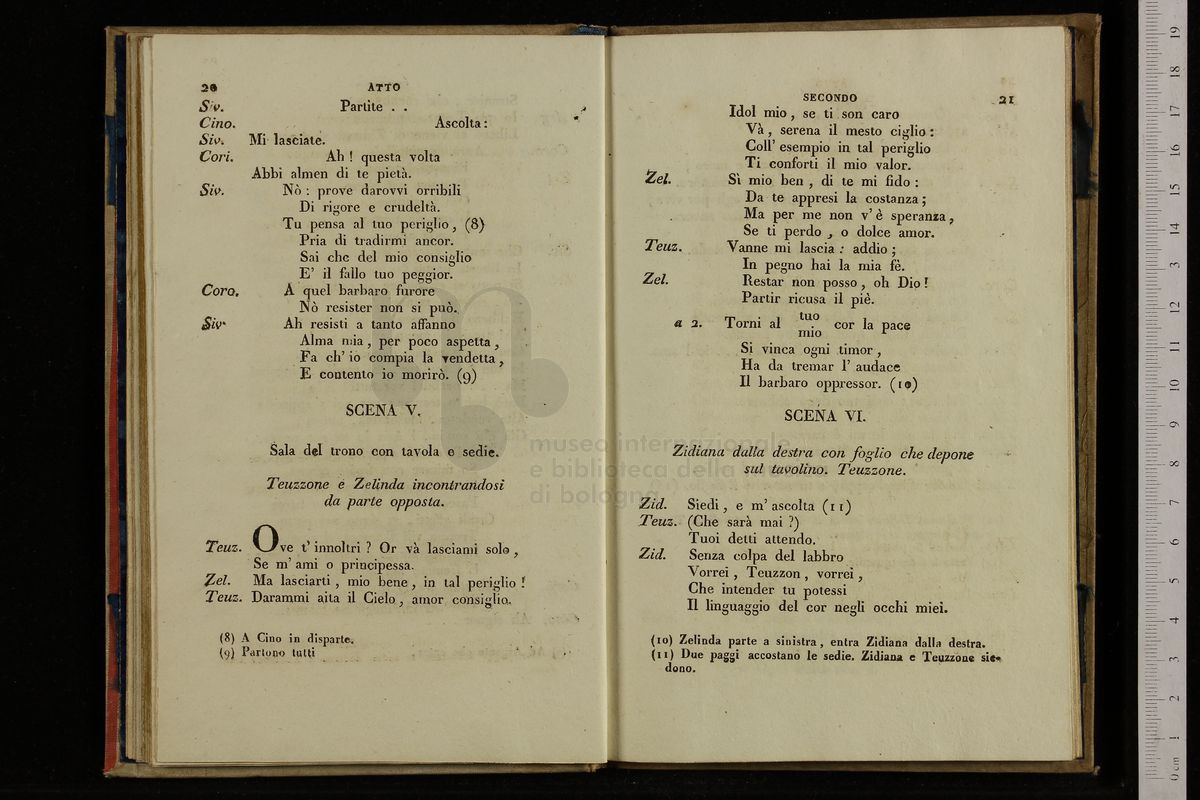 20 ATTO
Siv. Partite . .
Cino. Ascolta :
Siv. Mi lasciate.
Cori. Ah ! questa volta
Abbi almen di te pietà.
Siv. Nò : prove darovvi orribili
Di rigore e crudeltà.
Tu pensa al tuo periglio, (8)
Pria di tradirmi ancor.
Sai che del mio consiglio
E' il fallo tuo peggior.
Coro. A quel barbaro furore
Nò resister non si può.
Siv. Ah resisti a tanto affanno
Alma mia, per poco aspetta,
Fa ch' io compia la vendetta,
E contento io morirò. (9)
SCENA V.
Sala del trono con tavola e sedie.
Teuzzone e Zelinda incontrandosi
da parte opposta.
Teuz. Ove t' innoltri ? Or và lasciami solo,
Se m' ami o principessa.
Zel. Ma lasciarti, mio bene, in tal periglio !
Teuz. Darammi aita il Cielo, amor consiglio.
(8) A Cino in disparte.
(9) Partono tutti
SECONDO 21
Idol mio, se ti son caro
Và, serena il mesto ciglio :
Coll' esempio in tal periglio
Ti conforti il mio valor.
Zel. Sì mio ben, di te mi fido :
Da te appresi la costanza ;
Ma per me non v' è speranza,
Se ti perdo, o dolce amor.
Teuz. Vanne mi lascia : addio ;
In pegno hai la mia fè.
Zel. Restar non posso, oh Dio !
Partir ricusa il piè.
a 2. Torni al tuo mio cor la pace
Si vinca ogni timor,
Ha da tremar l' audace
Il barbaro oppressor. (10)
SCENA VI.
Zidiana dalla destra con foglio che depone
sul tavolino. Teuzzone.
Zid. Siedi, e m' ascolta (11)
Teuz. (Che sarà mai ?)
Tuoi detti attendo.
Zid. Senza colpa del labbro
Vorrei, Teuzzon, vorrei,
Che intender tu potessi
Il linguaggio del cor negli occhi miei.
(10) Zelinda parte a sinistra, entra Zidiana dalla destra.
(11) Due paggi accostano le sedie. Zidiana e Teuzzone sie-
dono.
museo internazionale
e biblioteca della
di bologna
0 cm 1 2 3 4 5 6 7 8 9 10 11 12 13 14 15 16 17 18 19